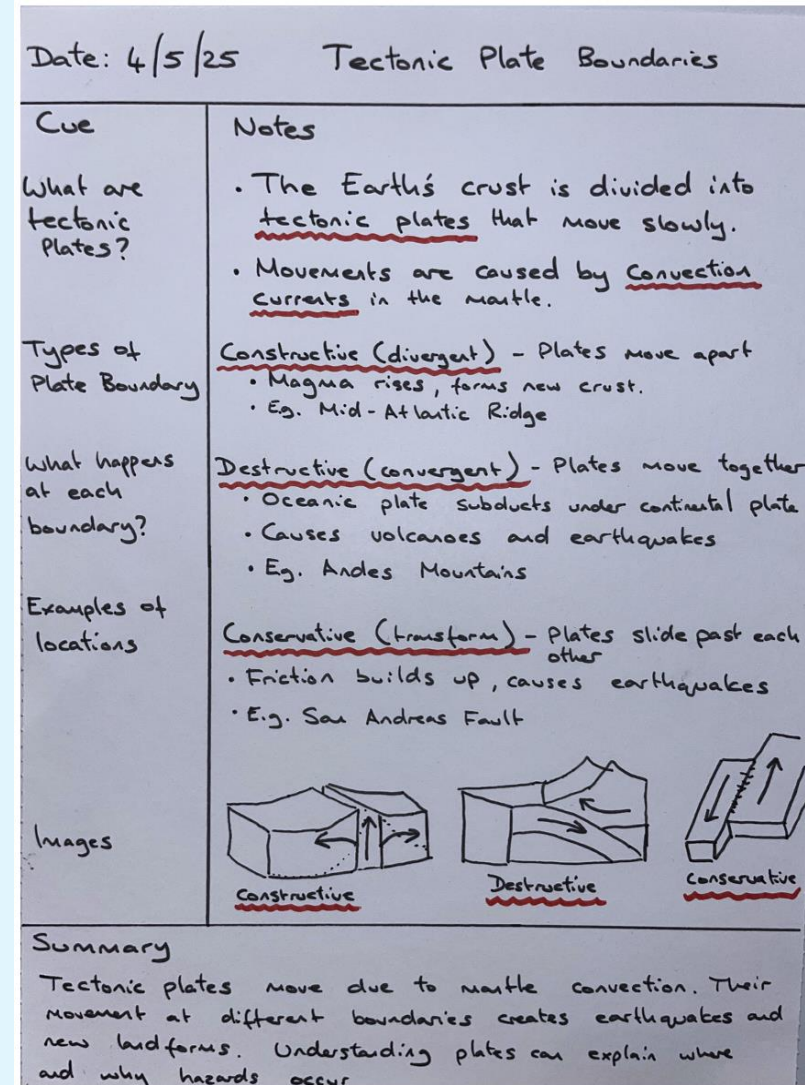 Date: 4/5/25 Tectonic Plate Boundaries
Cue
Notes
What are
tectonic
Plates?
• The Earth's crust is divided into
tectonic plates that move slowly.
• Movements are caused by Convection
currents in the mantle.
Types of
Plate Boundary
Constructive (divergent) - Plates move apart
• Magma rises, forms new crust.
• Eg. Mid-Atlantic Ridge
What happens
at each
boundary?
Destructive (convergent) - Plates move together
• Oceanic plate subducts under continental plate
• Causes volcanoes and earthquakes
• Eg. Andes Mountains
Examples of
locations
Conservative (transform) - Plates slide past each
other
• Friction builds up, causes earthquakes
• E.g. San Andreas Fault
Images
Constructive
Destructive
Conservative
Summary
Tectonic plates move due to mantle convection. Their
movement at different boundaries creates earthquakes and
new landforms. Understanding plates can explain where
and why hazards occur